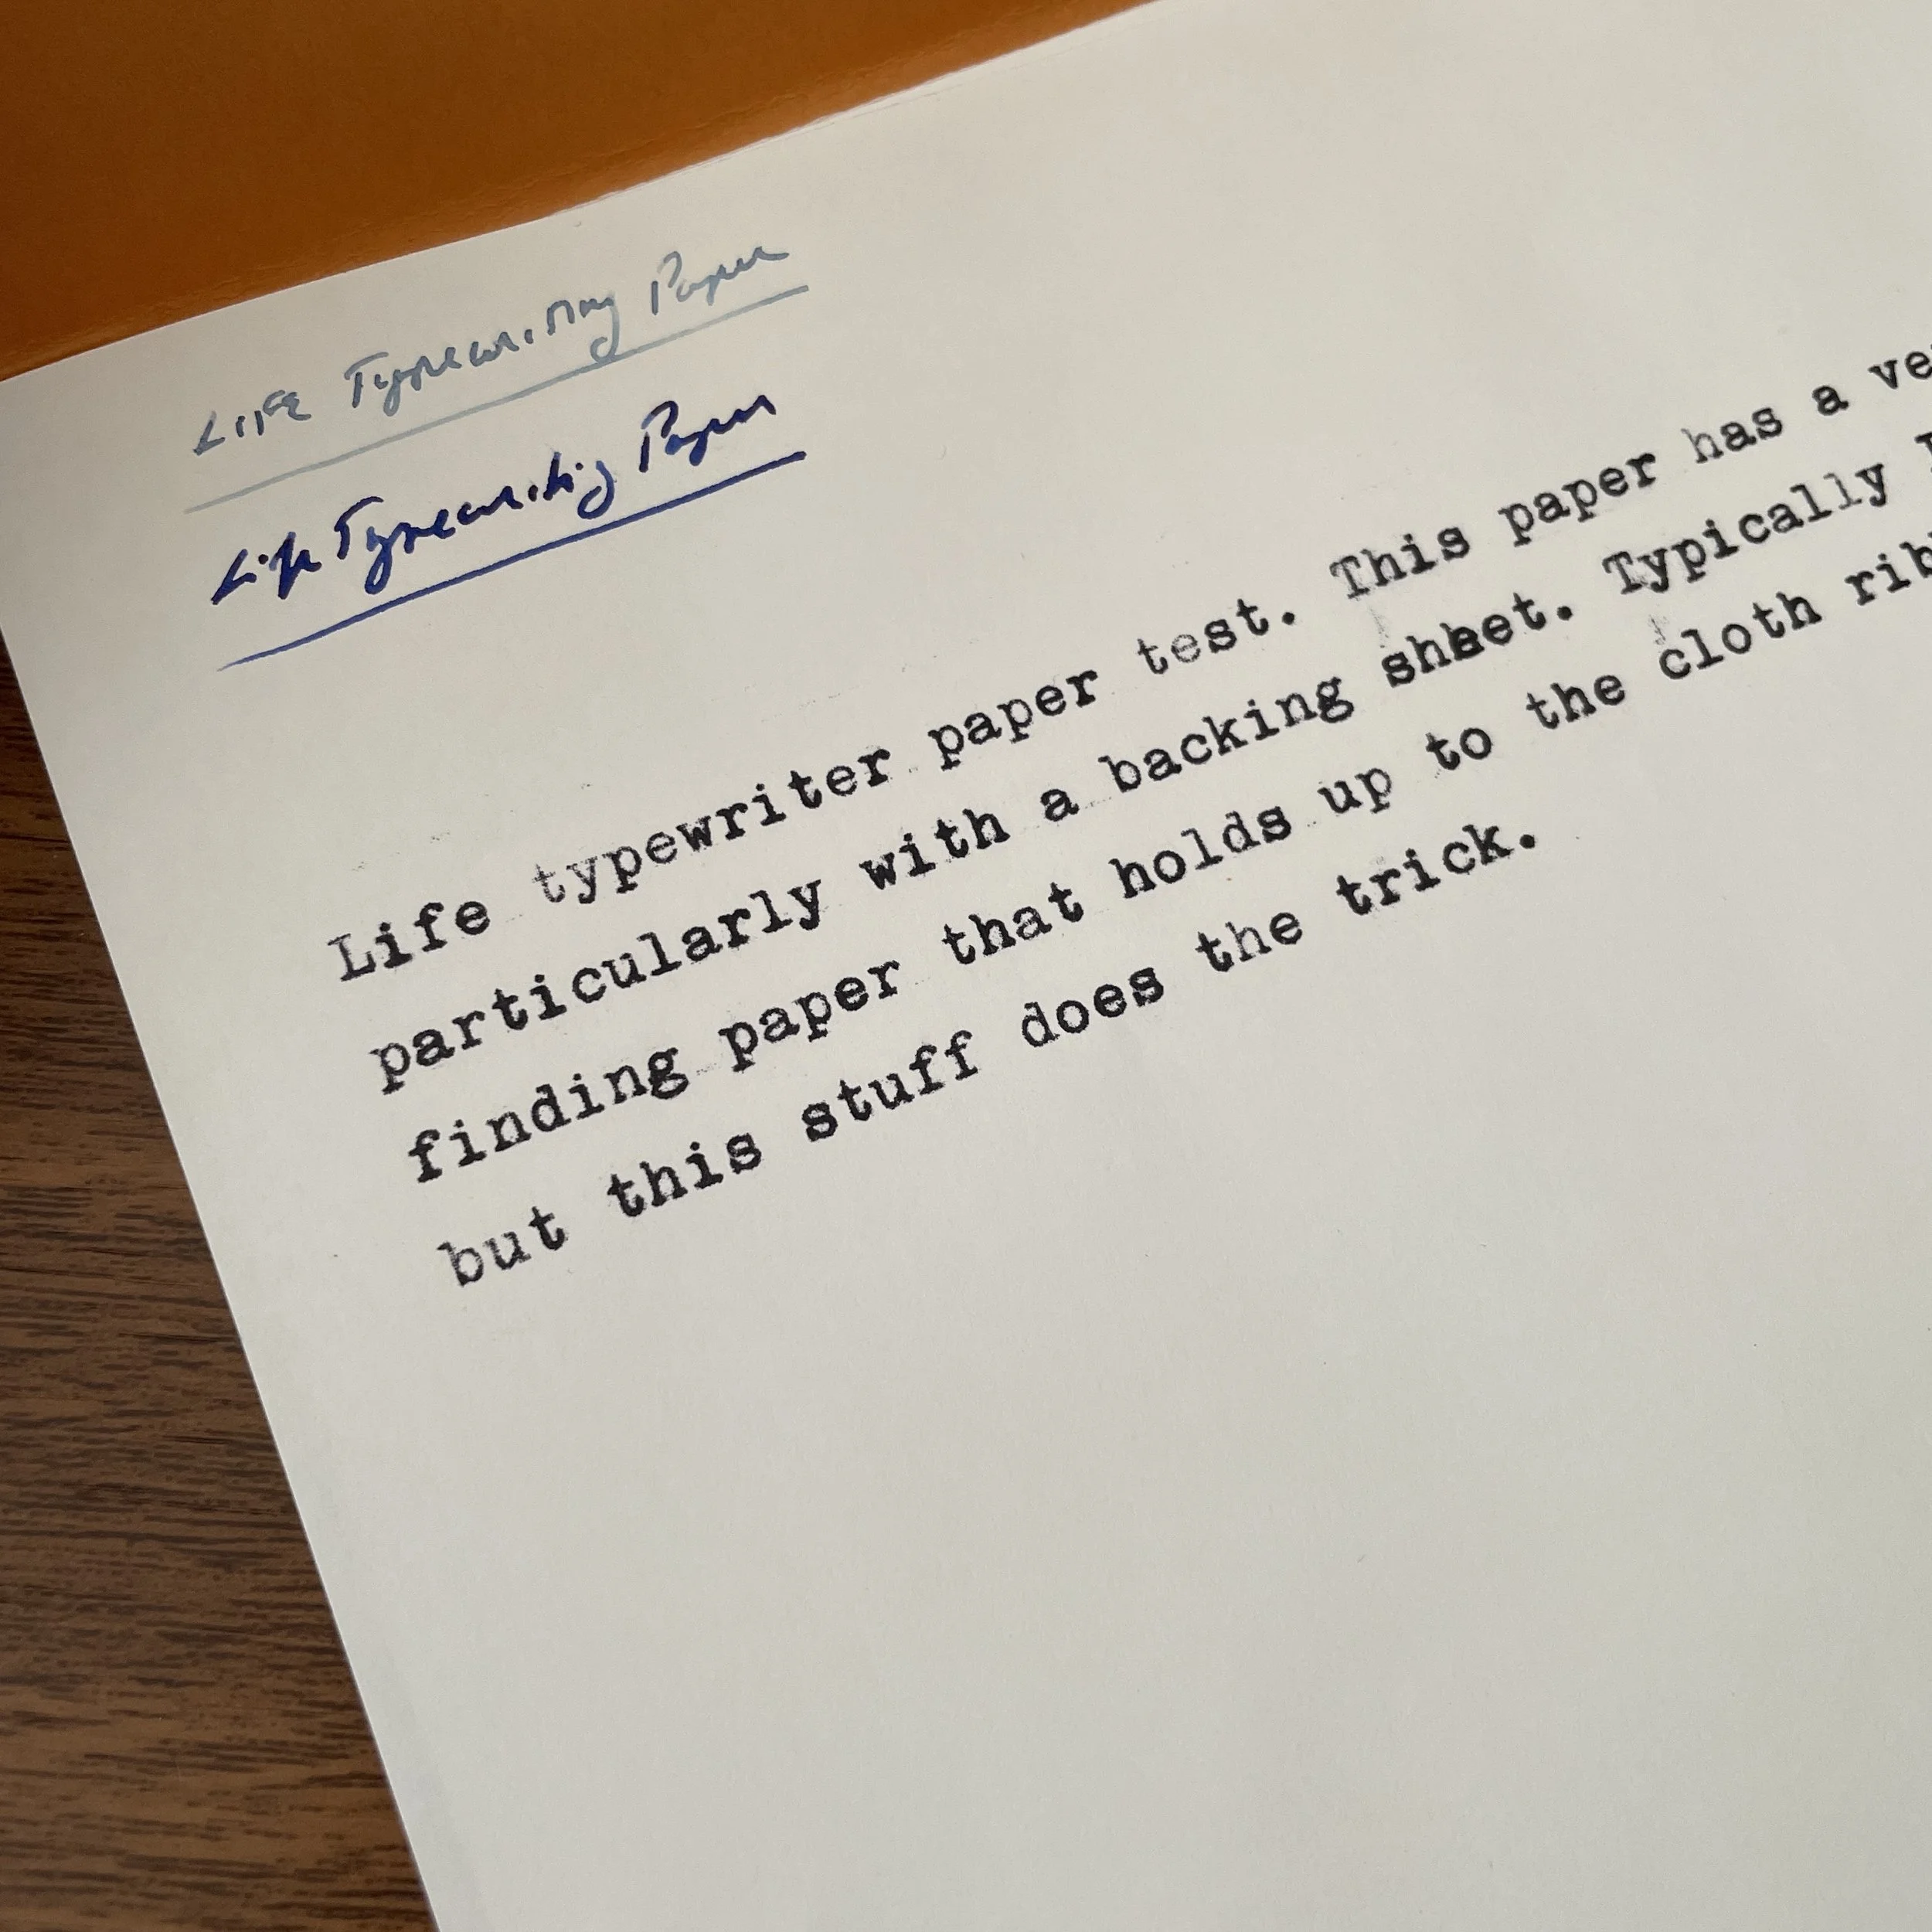 Life Typewriting Paper
Life Typewriting Paper
Life typewriter paper test. This paper has a
particularly with a backing sheet. Typically
finding paper that holds up to the cloth
but this stuff does the trick.